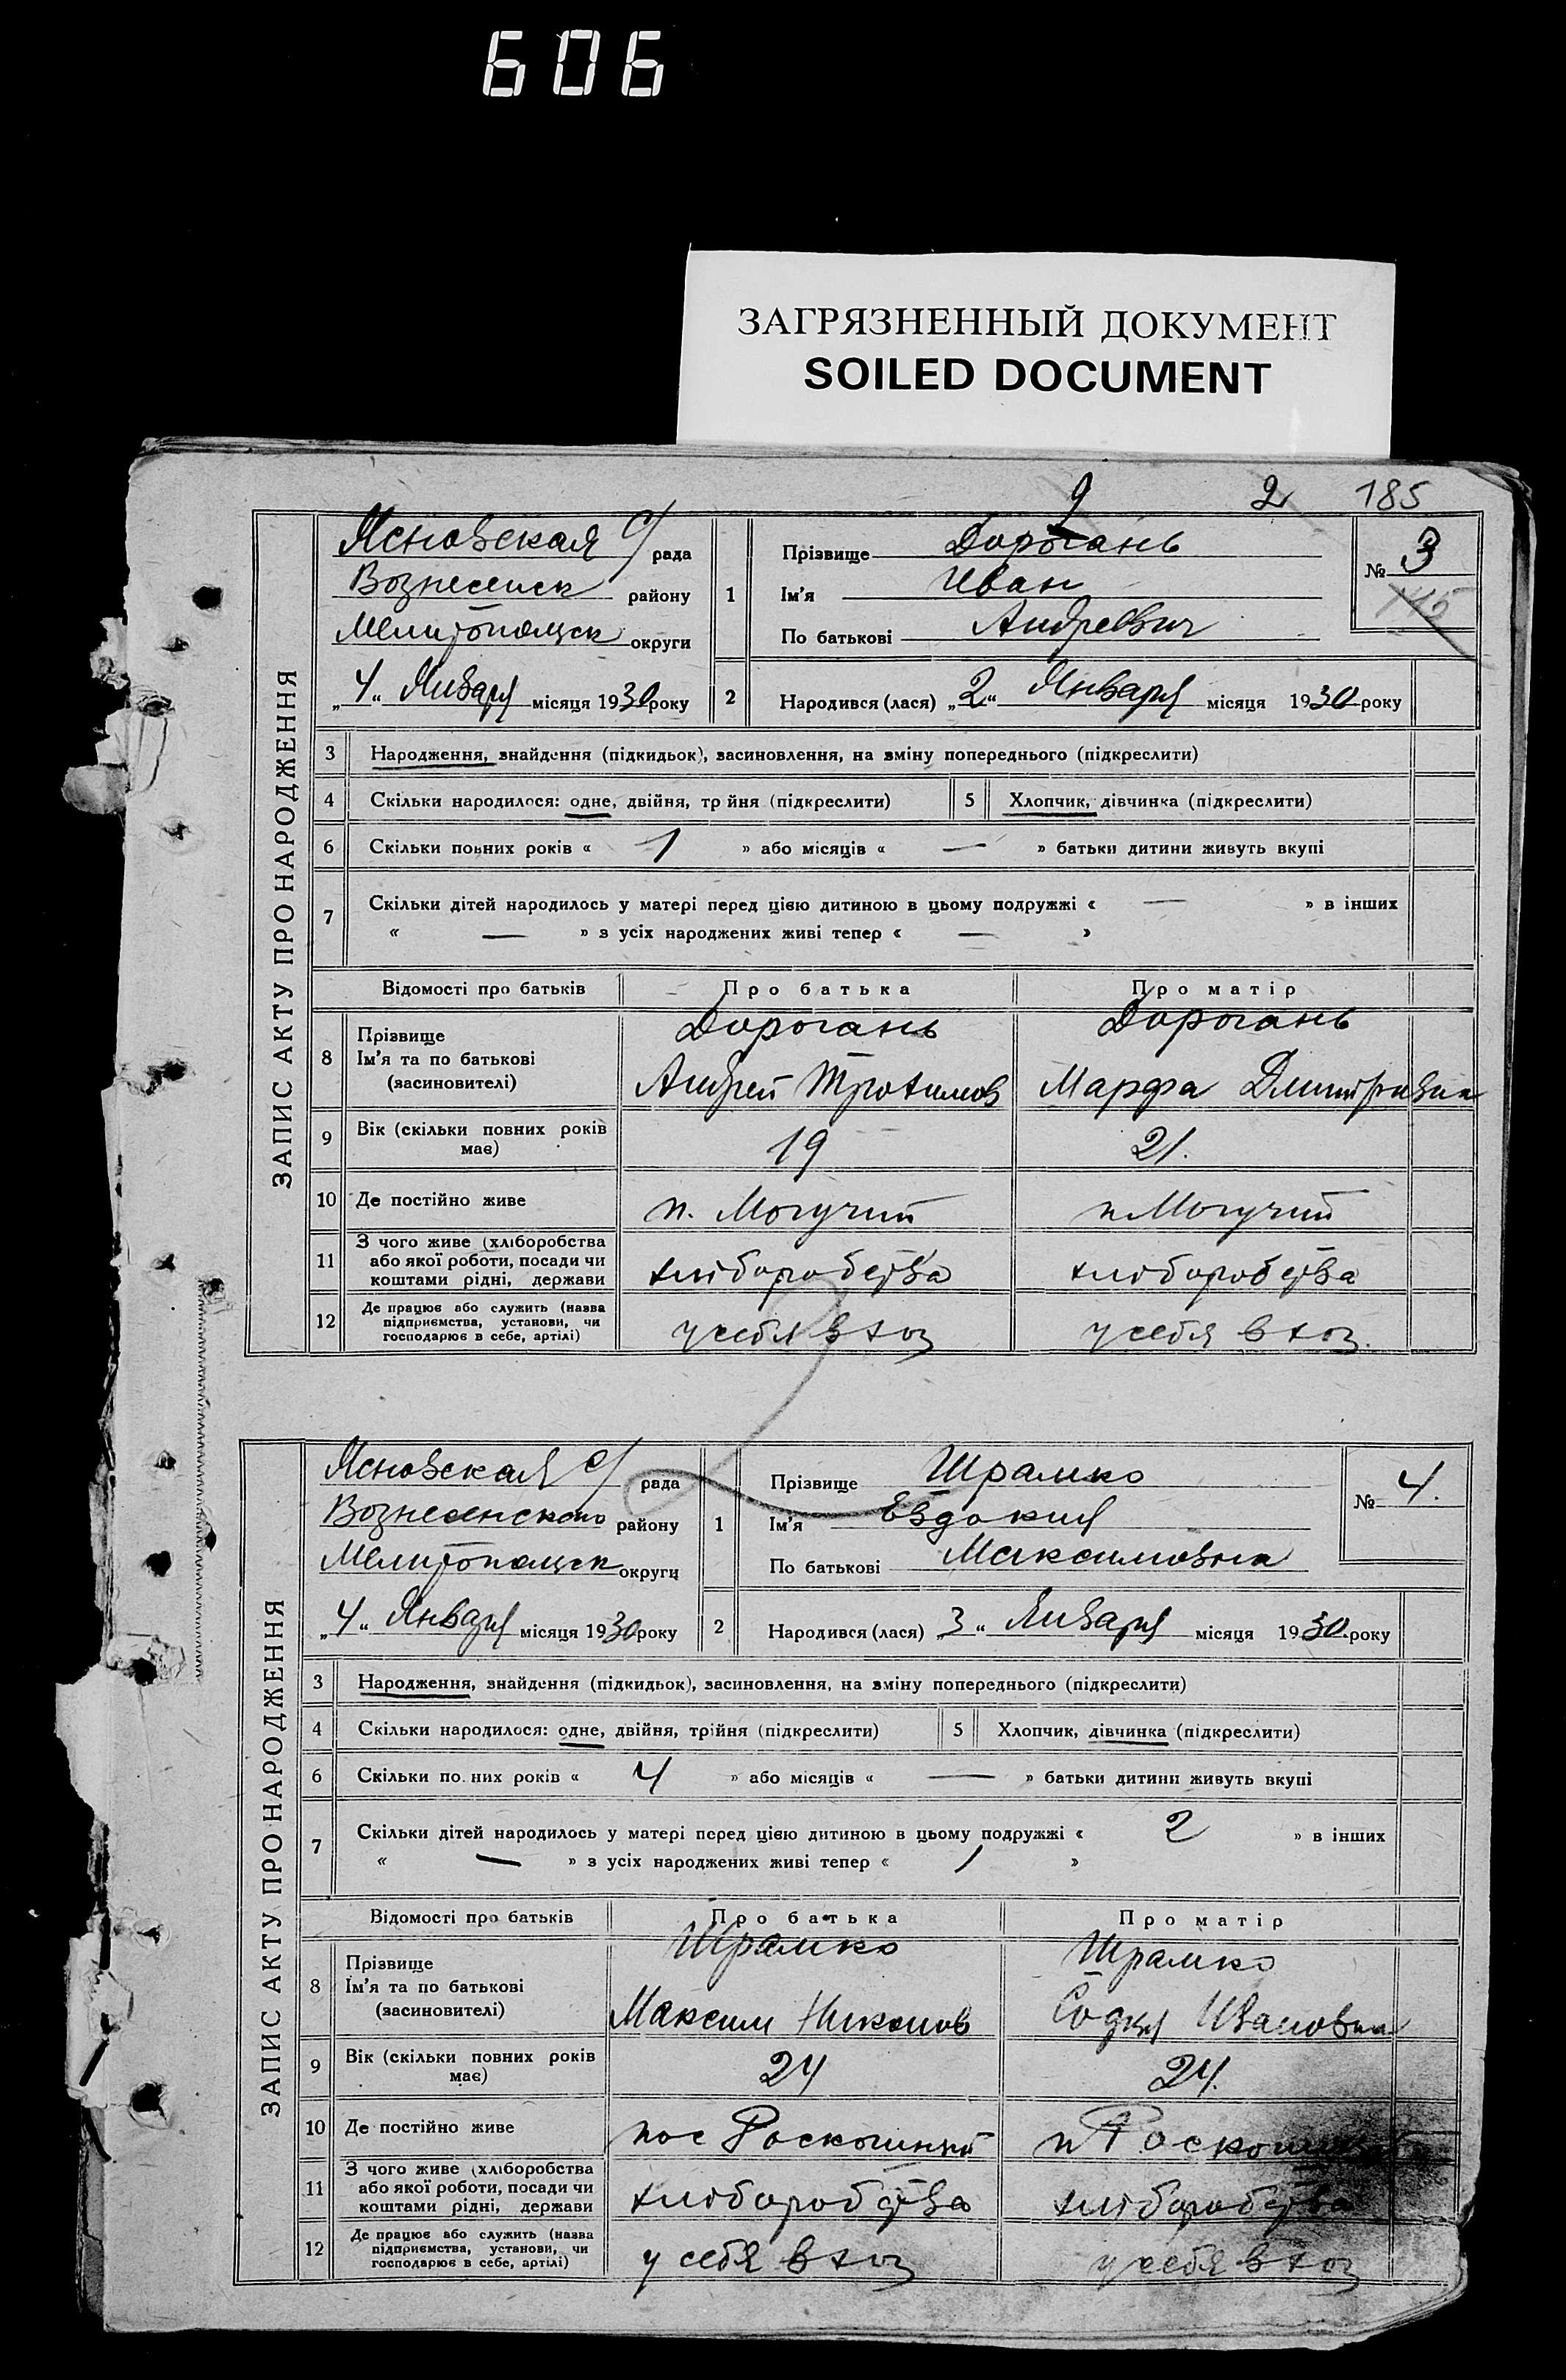 606
ЗАГРЯЗНЕННЫЙ ДОКУМЕНТ
SOILED DOCUMENT
2 2 185
ЗАПИС АКТУ ПРО НАРОДЖЕННЯ
Ясновская с/ рада
Вознесенск району
Мелитопольск округи
„4“ Января місяця 1930 року
1 Прізвище Дорогань
Ім'я Иван
По батькові Андреевич
№ 3
145
2 Народився (лася) „2“ Января місяця 1930 року
3 Народження, знайдення (підкидьок), засиновлення, на зміну попереднього (підкреслити)
4 Скільки народилося: одне, двійня, трійня (підкреслити) 5 Хлопчик, дівчинка (підкреслити)
6 Скільки повних років « 1 » або місяців « — » батьки дитини живуть вкупі
7 Скільки дітей народилось у матері перед цією дитиною в цьому подружжі « — » в інших
« — » з усіх народжених живі тепер « — »
Відомості про батьків Про батька Про матір
8 Прізвище Дорогань Дорогань
Ім'я та по батькові Андрей Трохимов Марфа Дмитривна
(засиновителі)
9 Вік (скільки повних років має) 19 21.
10 Де постійно живе п. Могучий п Могучий
11 З чого живе (хліборобства
або якої роботи, посади чи
коштами рідні, держави хліборобства хліборобства
12 Де працює або служить (назва
підприємства, установи, чи
господарює в себе, артілі) у себя в хоз у себя в хоз.
ЗАПИС АКТУ ПРО НАРОДЖЕННЯ
Ясновская с/ рада
Вознесенского району
Мелитопольск округи
„4“ Января місяця 1930 року
1 Прізвище Шрамко
Ім'я Евдокия
По батькові Максимовна
№ 4.
2 Народився (лася) „3“ Января місяця 1930 року
3 Народження, знайдення (підкидьок), засиновлення, на зміну попереднього (підкреслити)
4 Скільки народилося: одне, двійня, трійня (підкреслити) 5 Хлопчик, дівчинка (підкреслити)
6 Скільки повних років « 4 » або місяців « — » батьки дитини живуть вкупі
7 Скільки дітей народилось у матері перед цією дитиною в цьому подружжі « 2 » в інших
« — » з усіх народжених живі тепер « 1 »
Відомості про батьків Про батька Про матір
8 Прізвище Шрамко Шрамко
Ім'я та по батькові Максим Никонов Ивановна
(засиновителі)
9 Вік (скільки повних років має) 24 24.
10 Де постійно живе пос Роскошный п Роскошный
11 З чого живе (хліборобства
або якої роботи, посади чи
коштами рідні, держави хліборобства хліборобства
12 Де працює або служить (назва
підприємства, установи, чи
господарює в себе, артілі) у себя в хоз у себя в хоз